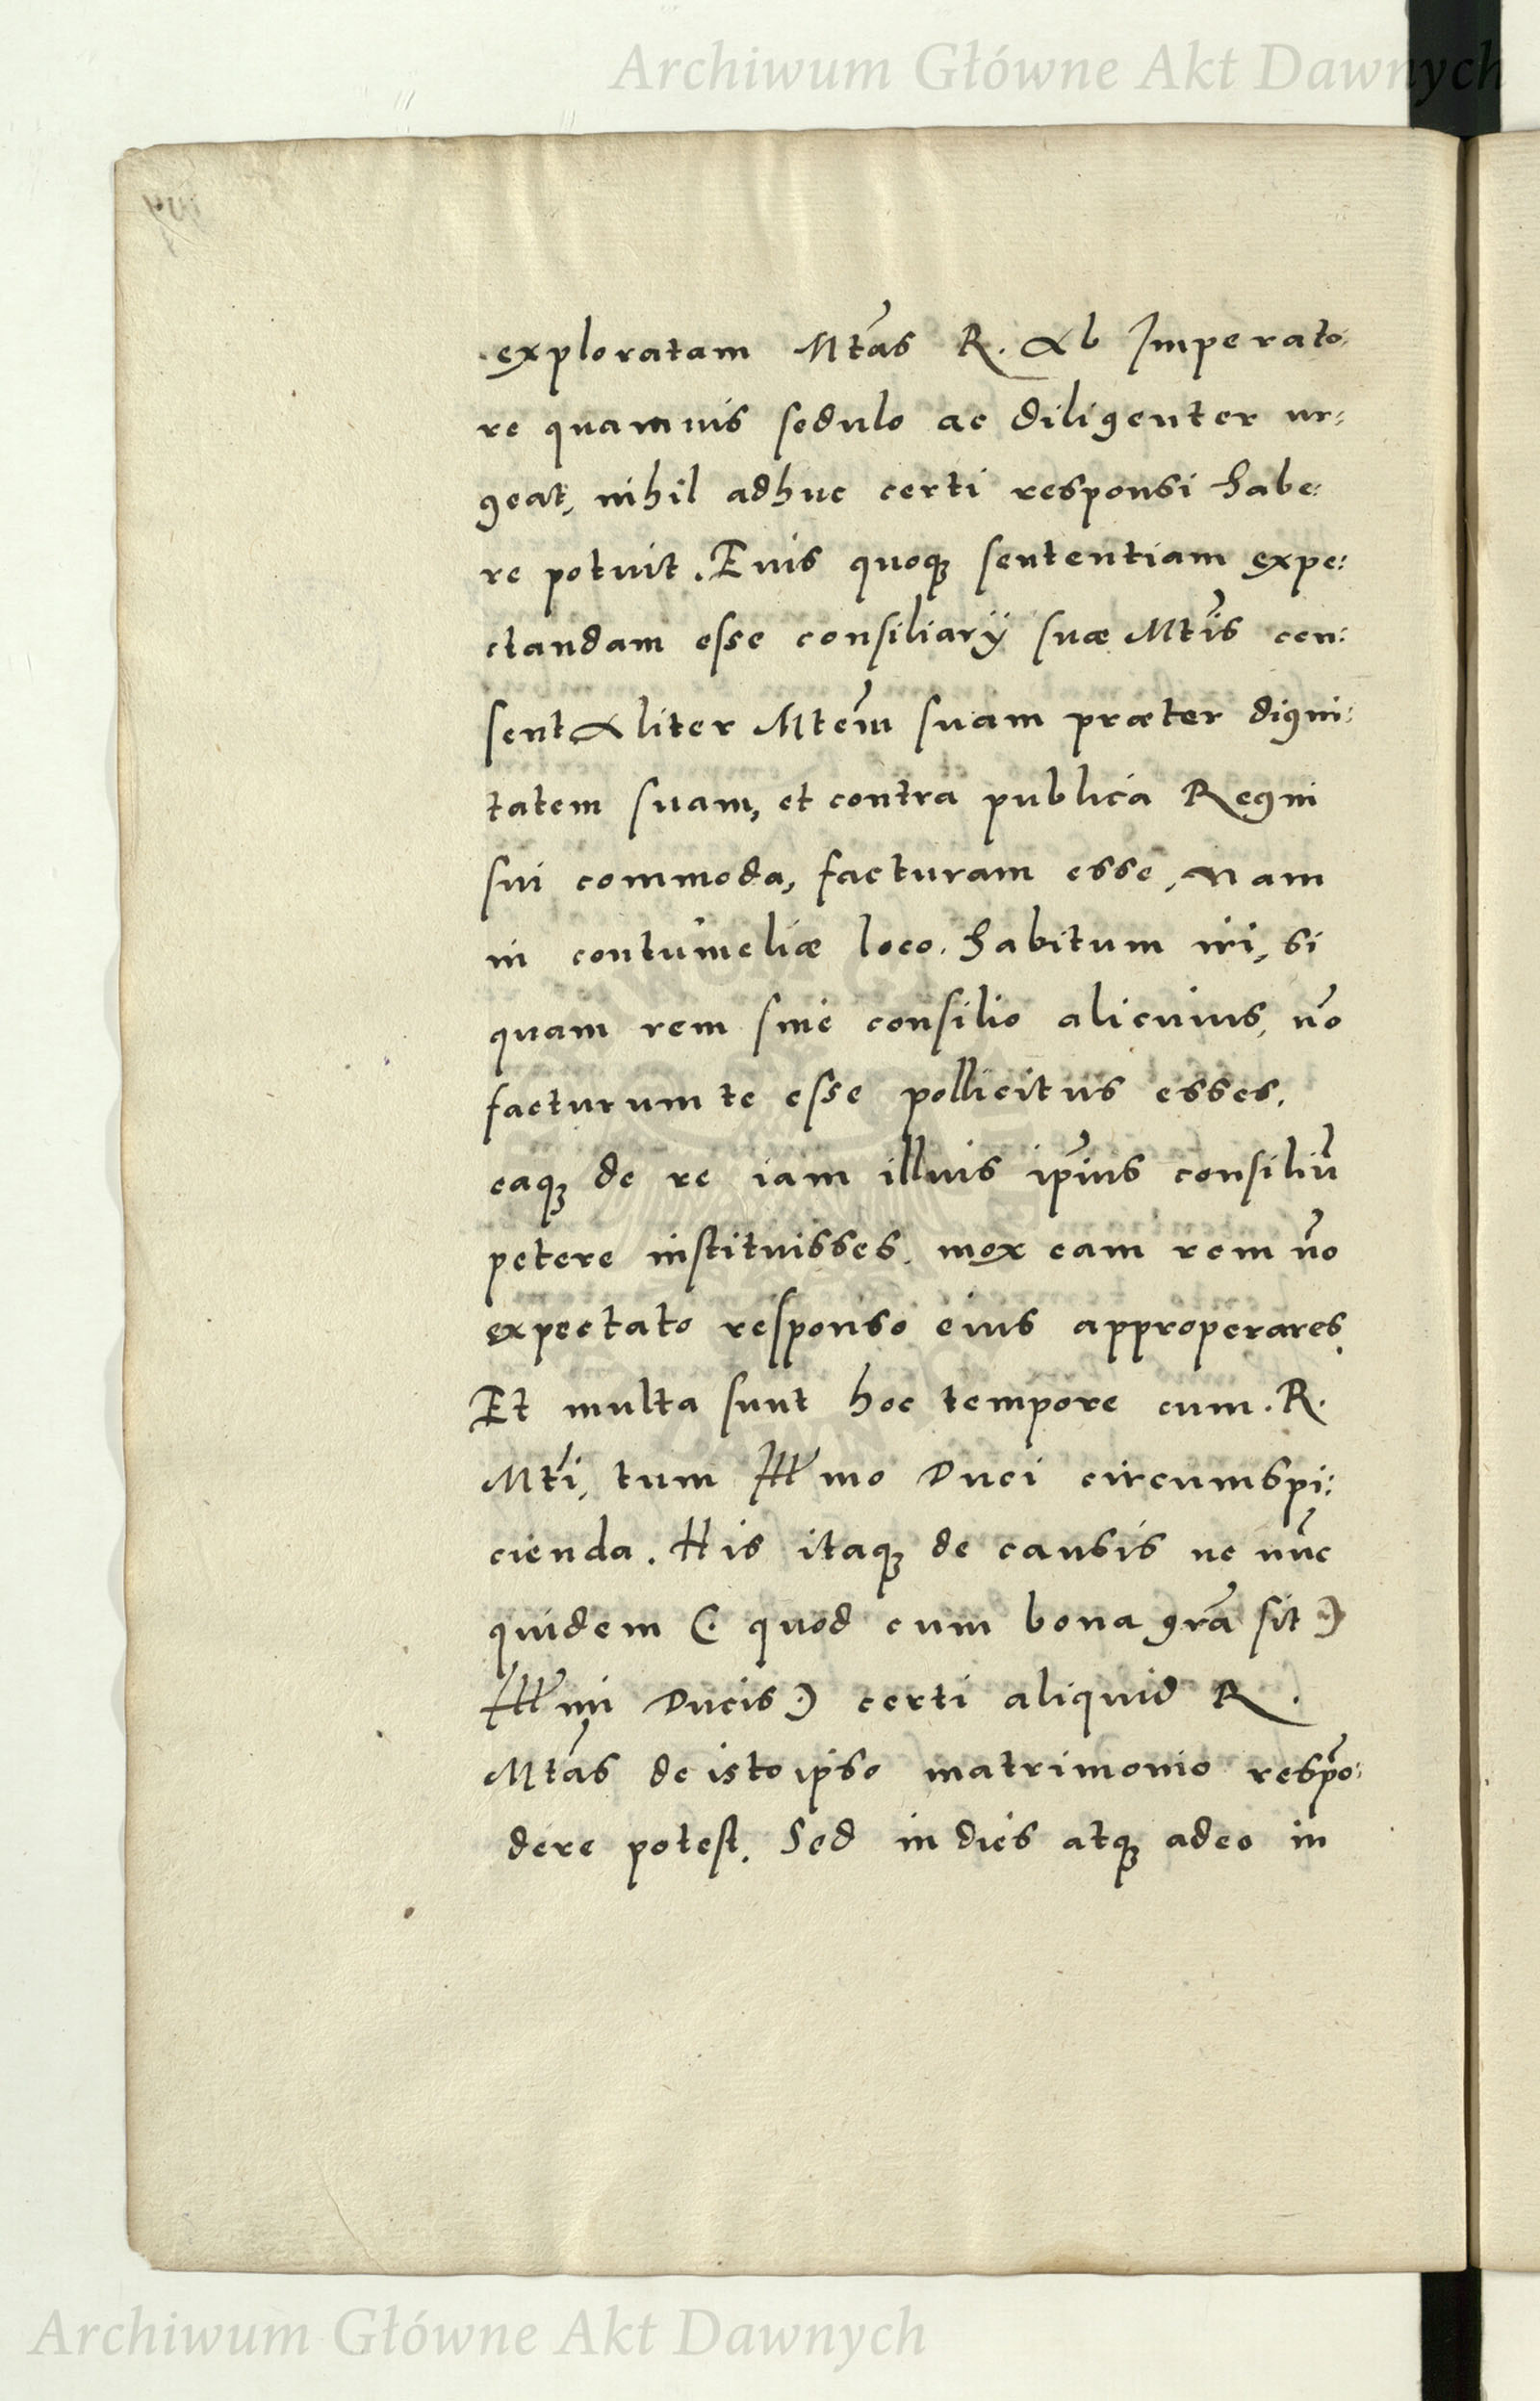 Archiwum Główne Akt Dawnych
exploratam Mtas R. Ab Imperato:
re quamuis sedulo ac diligenter ur:
geat, nihil adhuc certi responsi habe:
re potuit. Euis quoqȝ sententiam expe:
ctandam esse consiliarÿ suæ Mtis cen:
sent Aliter Mtem suam præter digni:
tatem suam, et contra publica Regni
sui commoda, facturam esse, nam
in contumeliæ loco. habitum iri, si
quam rem sine consilio alicuius, nõ
facturum te esse pollicitus esses.
eaqȝ de re iam illius ip̃ius consiliũ
petere instituisses. mox eam rem nõ
expectato responso eius approperares.
Et multa sunt hoc tempore cum. R.
Mti, tum Illmo Duci circumspi:
cienda. His itaqȝ de causis ne nũc
quidem (. quod cum bona grã sit .)
Illmi Ducis .) certi aliquid R.
Mtas de isto ipso matrimonio respõ:
dere potest. Sed in dies atqȝ adeo in
Archiwum Główne Akt Dawnych